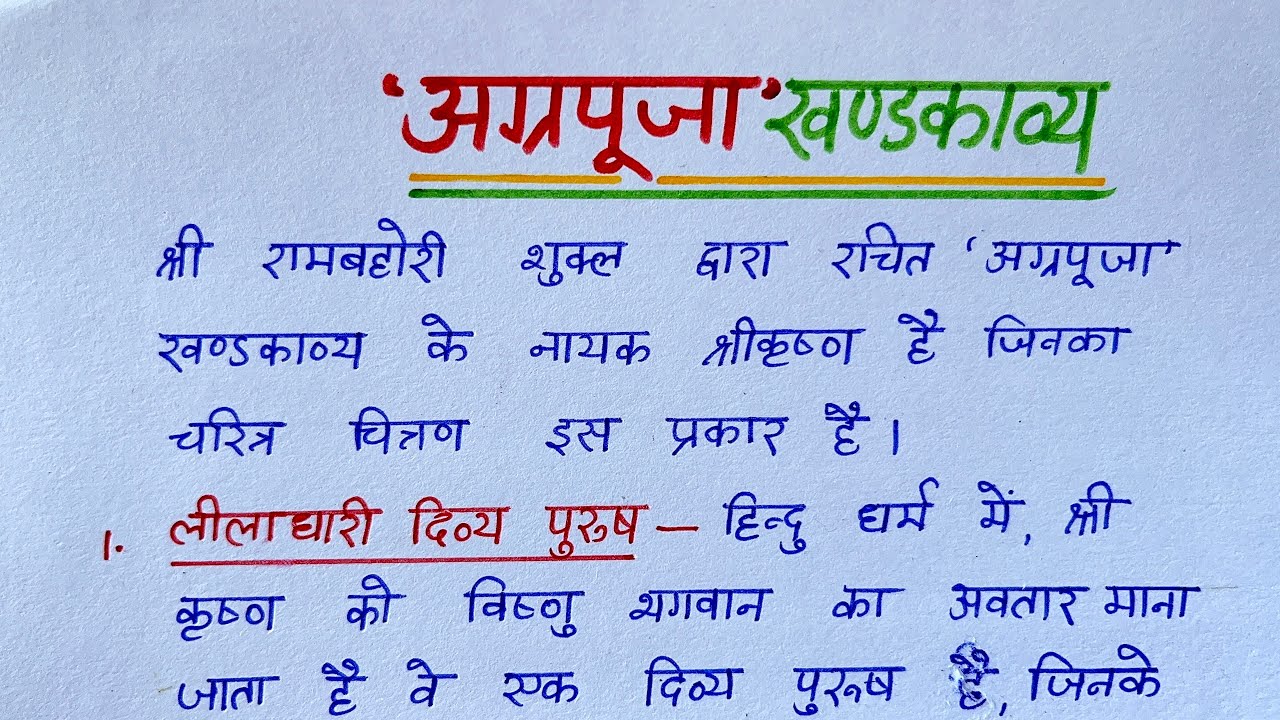 'अग्रपूजा' खण्डकाव्य
श्री रामबहोरी शुक्ल द्वारा रचित 'अग्रपूजा'
खण्डकाव्य के नायक श्रीकृष्ण है जिनका
चरित्र चित्रण इस प्रकार है।
1. लीलाधारी दिव्य पुरुष – हिन्दु धर्म में, श्री
कृष्ण को विष्णु भगवान का अवतार माना
जाता है वे एक दिव्य पुरूष है, जिनके